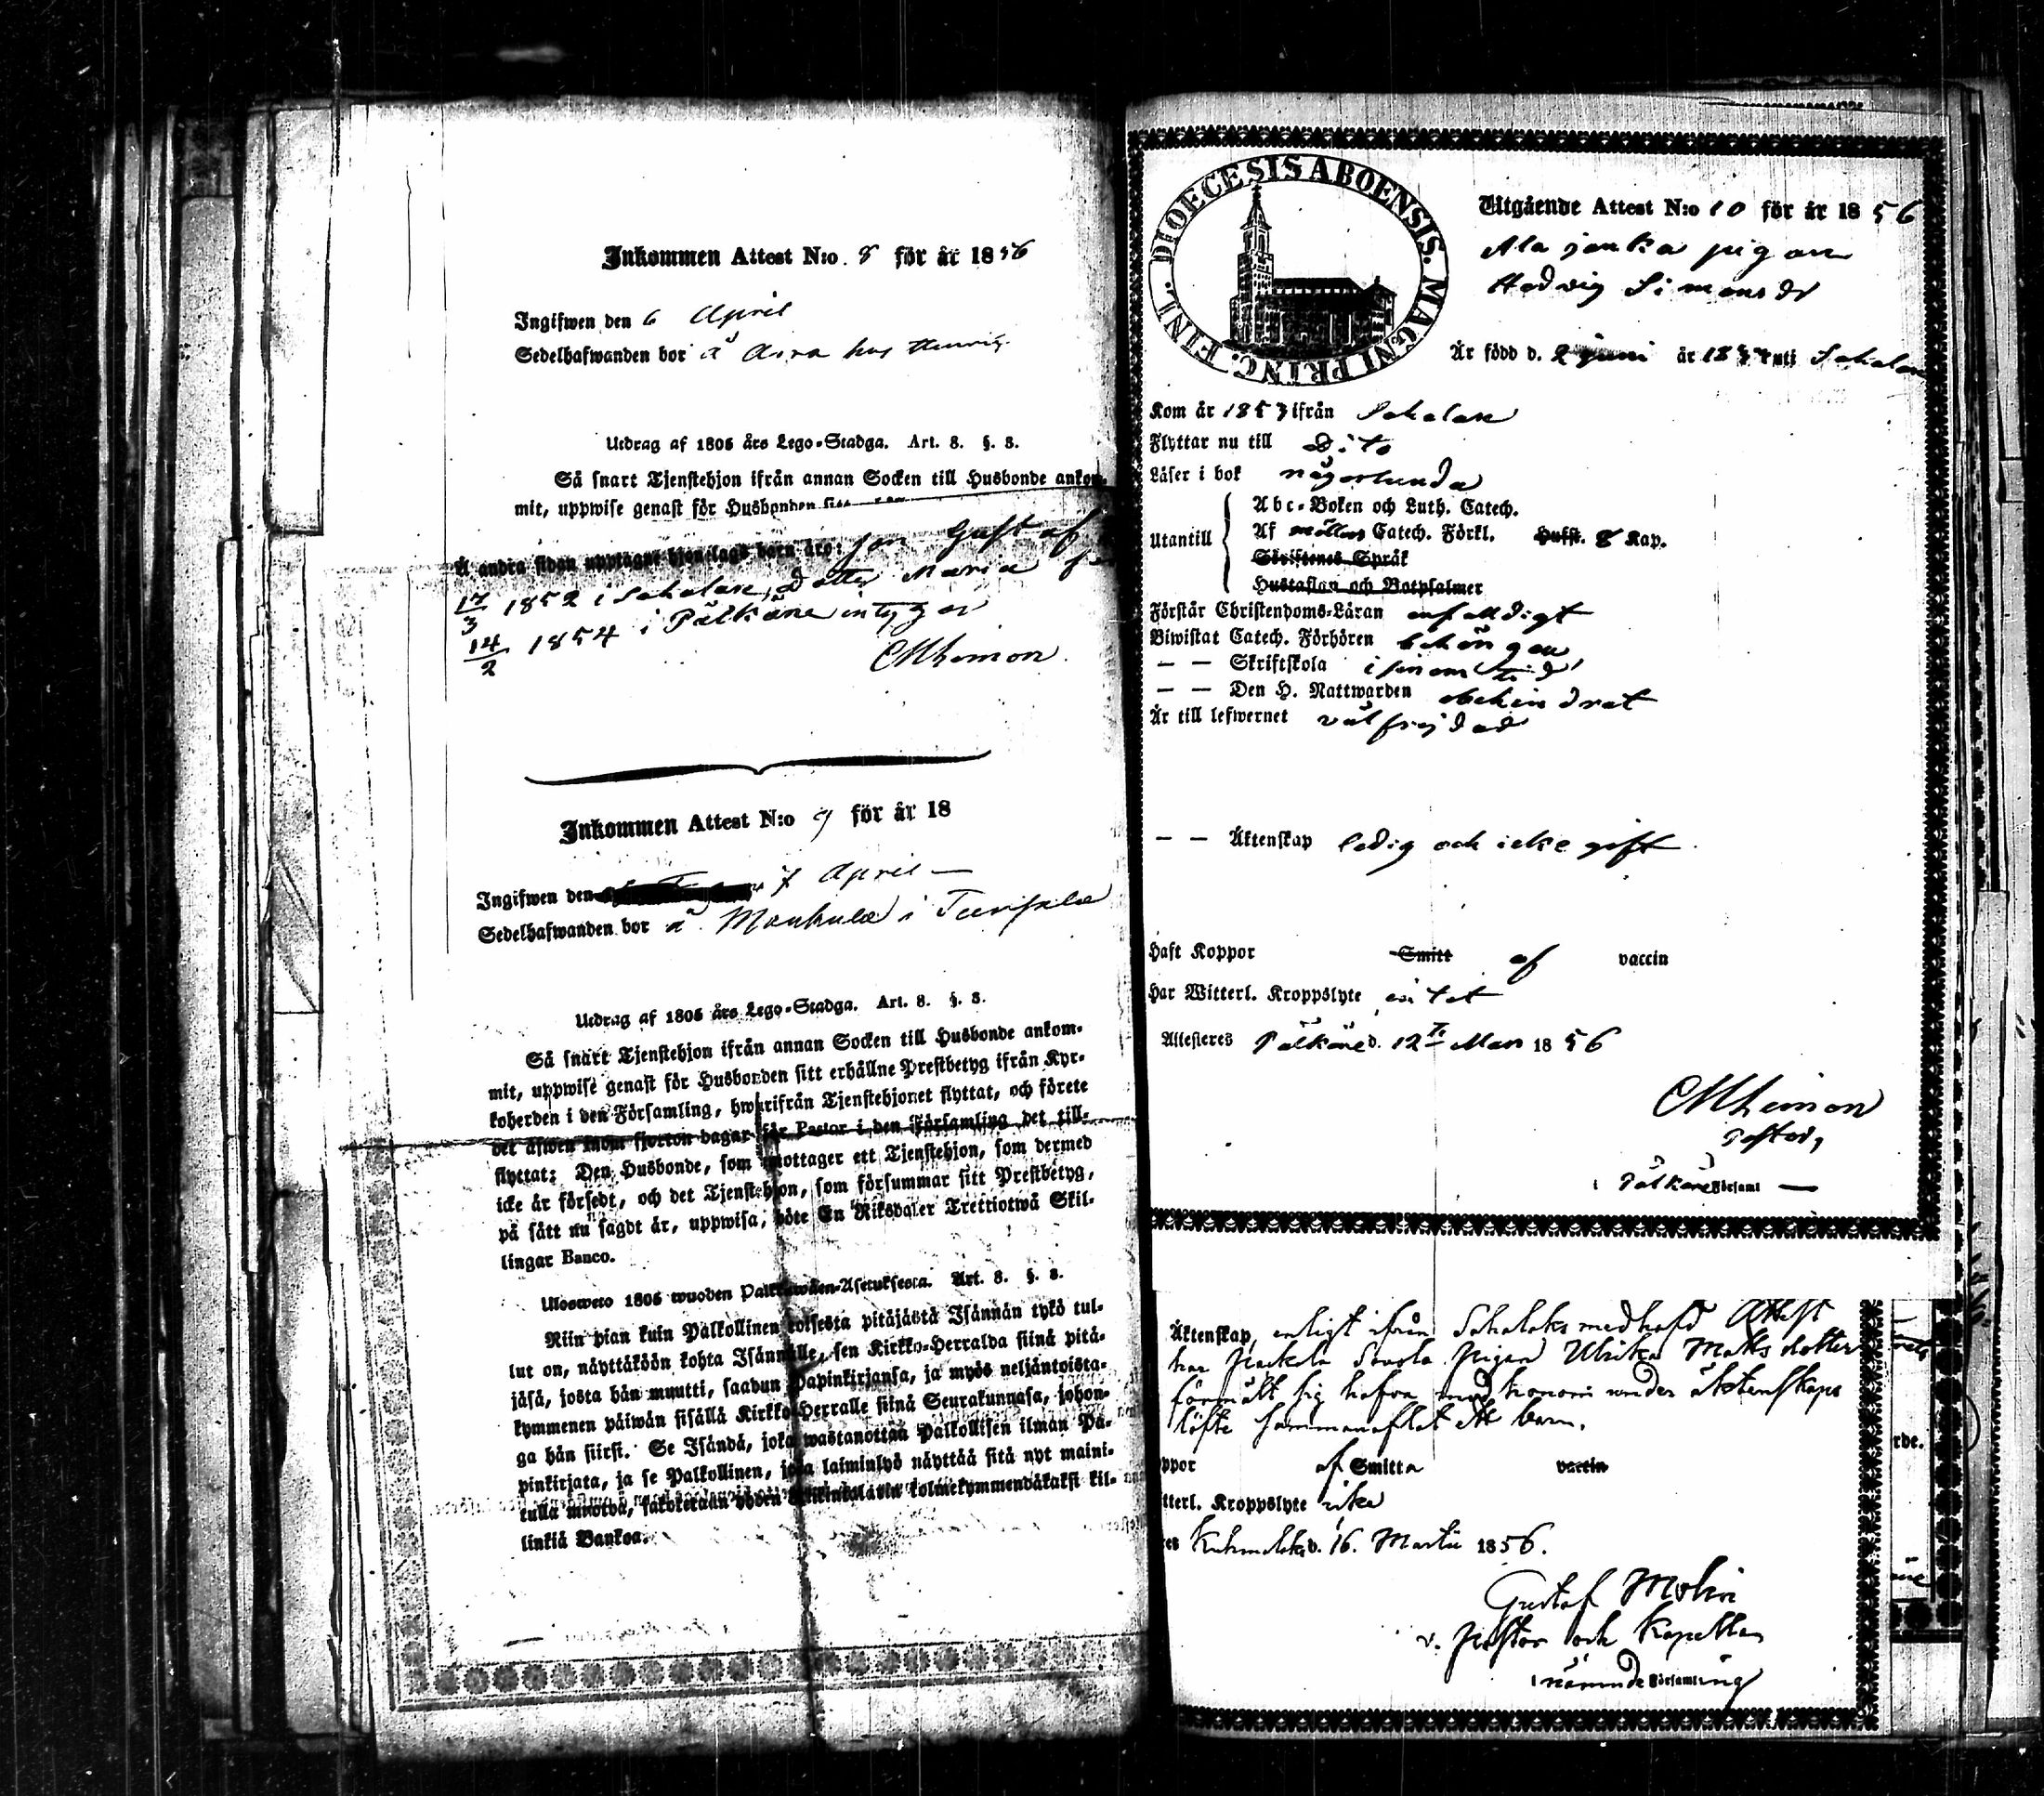 Inkommen Attest N:o 8 för år 1856
Ingifwen den 6 April
Sedelhafwanden bor å
Utdrag af 1805 års Lego-Stadga. Art. 8. §. 3.
Så snart Tjenstehjon ifrån annan Socken till Husbonde ankom-
mit, uppwise genast för Husbonden sitt
Å andra sidan upptagne hjonelags barn äro: son Gustaf
17/3 1852 i Sahalax, Dotter Maria
14/2 1854 i Pälkäne intygar
Inkommen Attest N:o 9 för år 18
Ingifwen den 7 April
Sedelhafwanden bor å Moukula i
Utdrag af 1805 års Lego-Stadga. Art. 8. §. 3.
Så snart Tjenstehjon ifrån annan Socken till Husbonde ankom-
mit, uppwise genast för Husbonden sitt erhållne Prestbetyg ifrån Kyr-
koherden i den Församling, hwarifrån Tjenstehjonet flyttat, och förete
det äfwen inom fjorton dagar för Pastor i den Församling det till-
flyttat; Den Husbonde, som mottager ett Tjenstehjon, som dermed
icke är försedt, och det Tjenstehjon, som försummar sitt Prestbetyg,
på sätt nu sagdt är, uppwisa, böte En Riksdaler Trettiotwå Skil-
lingar Banco.
Ulosweto 1805 wuoden Palkkawäen-Asetuksesta. Art. 8. §. 3.
Niin pian kuin Palkollinen toisesta pitäjästä Isännän tykö tul-
lut on, näyttäköön kohta Isännälle, sen Kirkko-Herralda siinä pitä-
jäsä, josta hän muutti, saadun Papinkirjansa, ja myös neljäntoista-
kymmenen päiwän sisällä Kirkko-Herralle siinä Seurakunnasa, johon-
ga hän siirsi. Se Isändä, joka wastanottaa Palkollisen ilman Pa-
pinkirjata, ja se Palkollinen, joka laiminlyö näyttää sitä nyt maini-
tulla muotoa, sakoketaan yhden Riikintalarin kolmekymmendäkaksi kil-
linkiä Bankoa.
DIOECESIS ABOENSIS. MAGNI PRINC. FINL.
Utgående Attest N:o 10 för år 1856
Ala jouka pigan
Hedvig Simonsdr
Är född d. 2 juni år 18 uti Sahalax
Kom år 1853 ifrån Sahalax
Flyttar nu till Dito
Läser i bok någorlunda
Abc-Boken och Luth. Catech.
Utantill Af möllers Catech. Förkl. Hufst. 8 Kap.
Skriftenes Språk
Hustaflan och Botpsalmer
Förstår Christendoms-Läran enfalldigt
Biwistat Catech. Förhören behörigen
— — Skriftskola i sinom tid
— — Den H. Nattwarden obehindrat
Är till lefwernet välfrejdad
— — Äktenskap ledig och icke gift
Haft Koppor Smitt af vaccin
Har Witterl. Kroppslyte intet
Attesteres Pälkäne d. 12 Mars 1856
Pastor,
i Pälkäne Församl
Äktenskap, enligt ifrån Sahalaks medhafd Attest
har pigan Ulrika Matts dotter
förmält sig hafva med honom under äktenskaps
löfte sammanaflat ett barn.
ppor af Smitta vaccin
tterl. Kroppslyte icke
es Kuhmalaks d. 16. Martii 1856.
Gustaf Molin
v. Pastor och Kapellan
i nämnde Församling